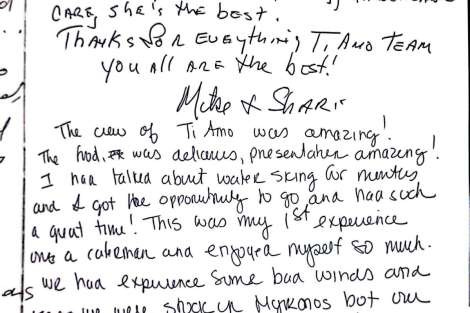 CARE, she's the best.
Thanks for EVEYthing, Ti Amo TEAM
you All ARE the best!
Mike & Shari
The crew of Ti Amo was amazing!
The food, was delicious, presentation amazing!
I had talked about water skiing for months
and I got the opportunity to go and had such
a great time! This was my 1st experience
on a catamaran and enjoyed myself so much.
We had experience some bad winds and
we were stuck in Mykonos but our